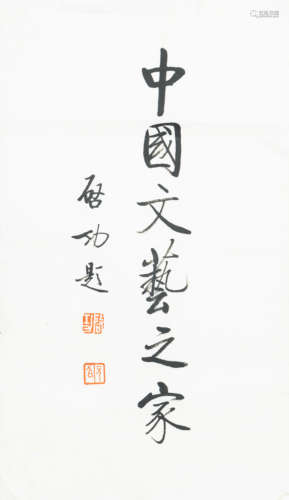 中國文藝之家
啓功題